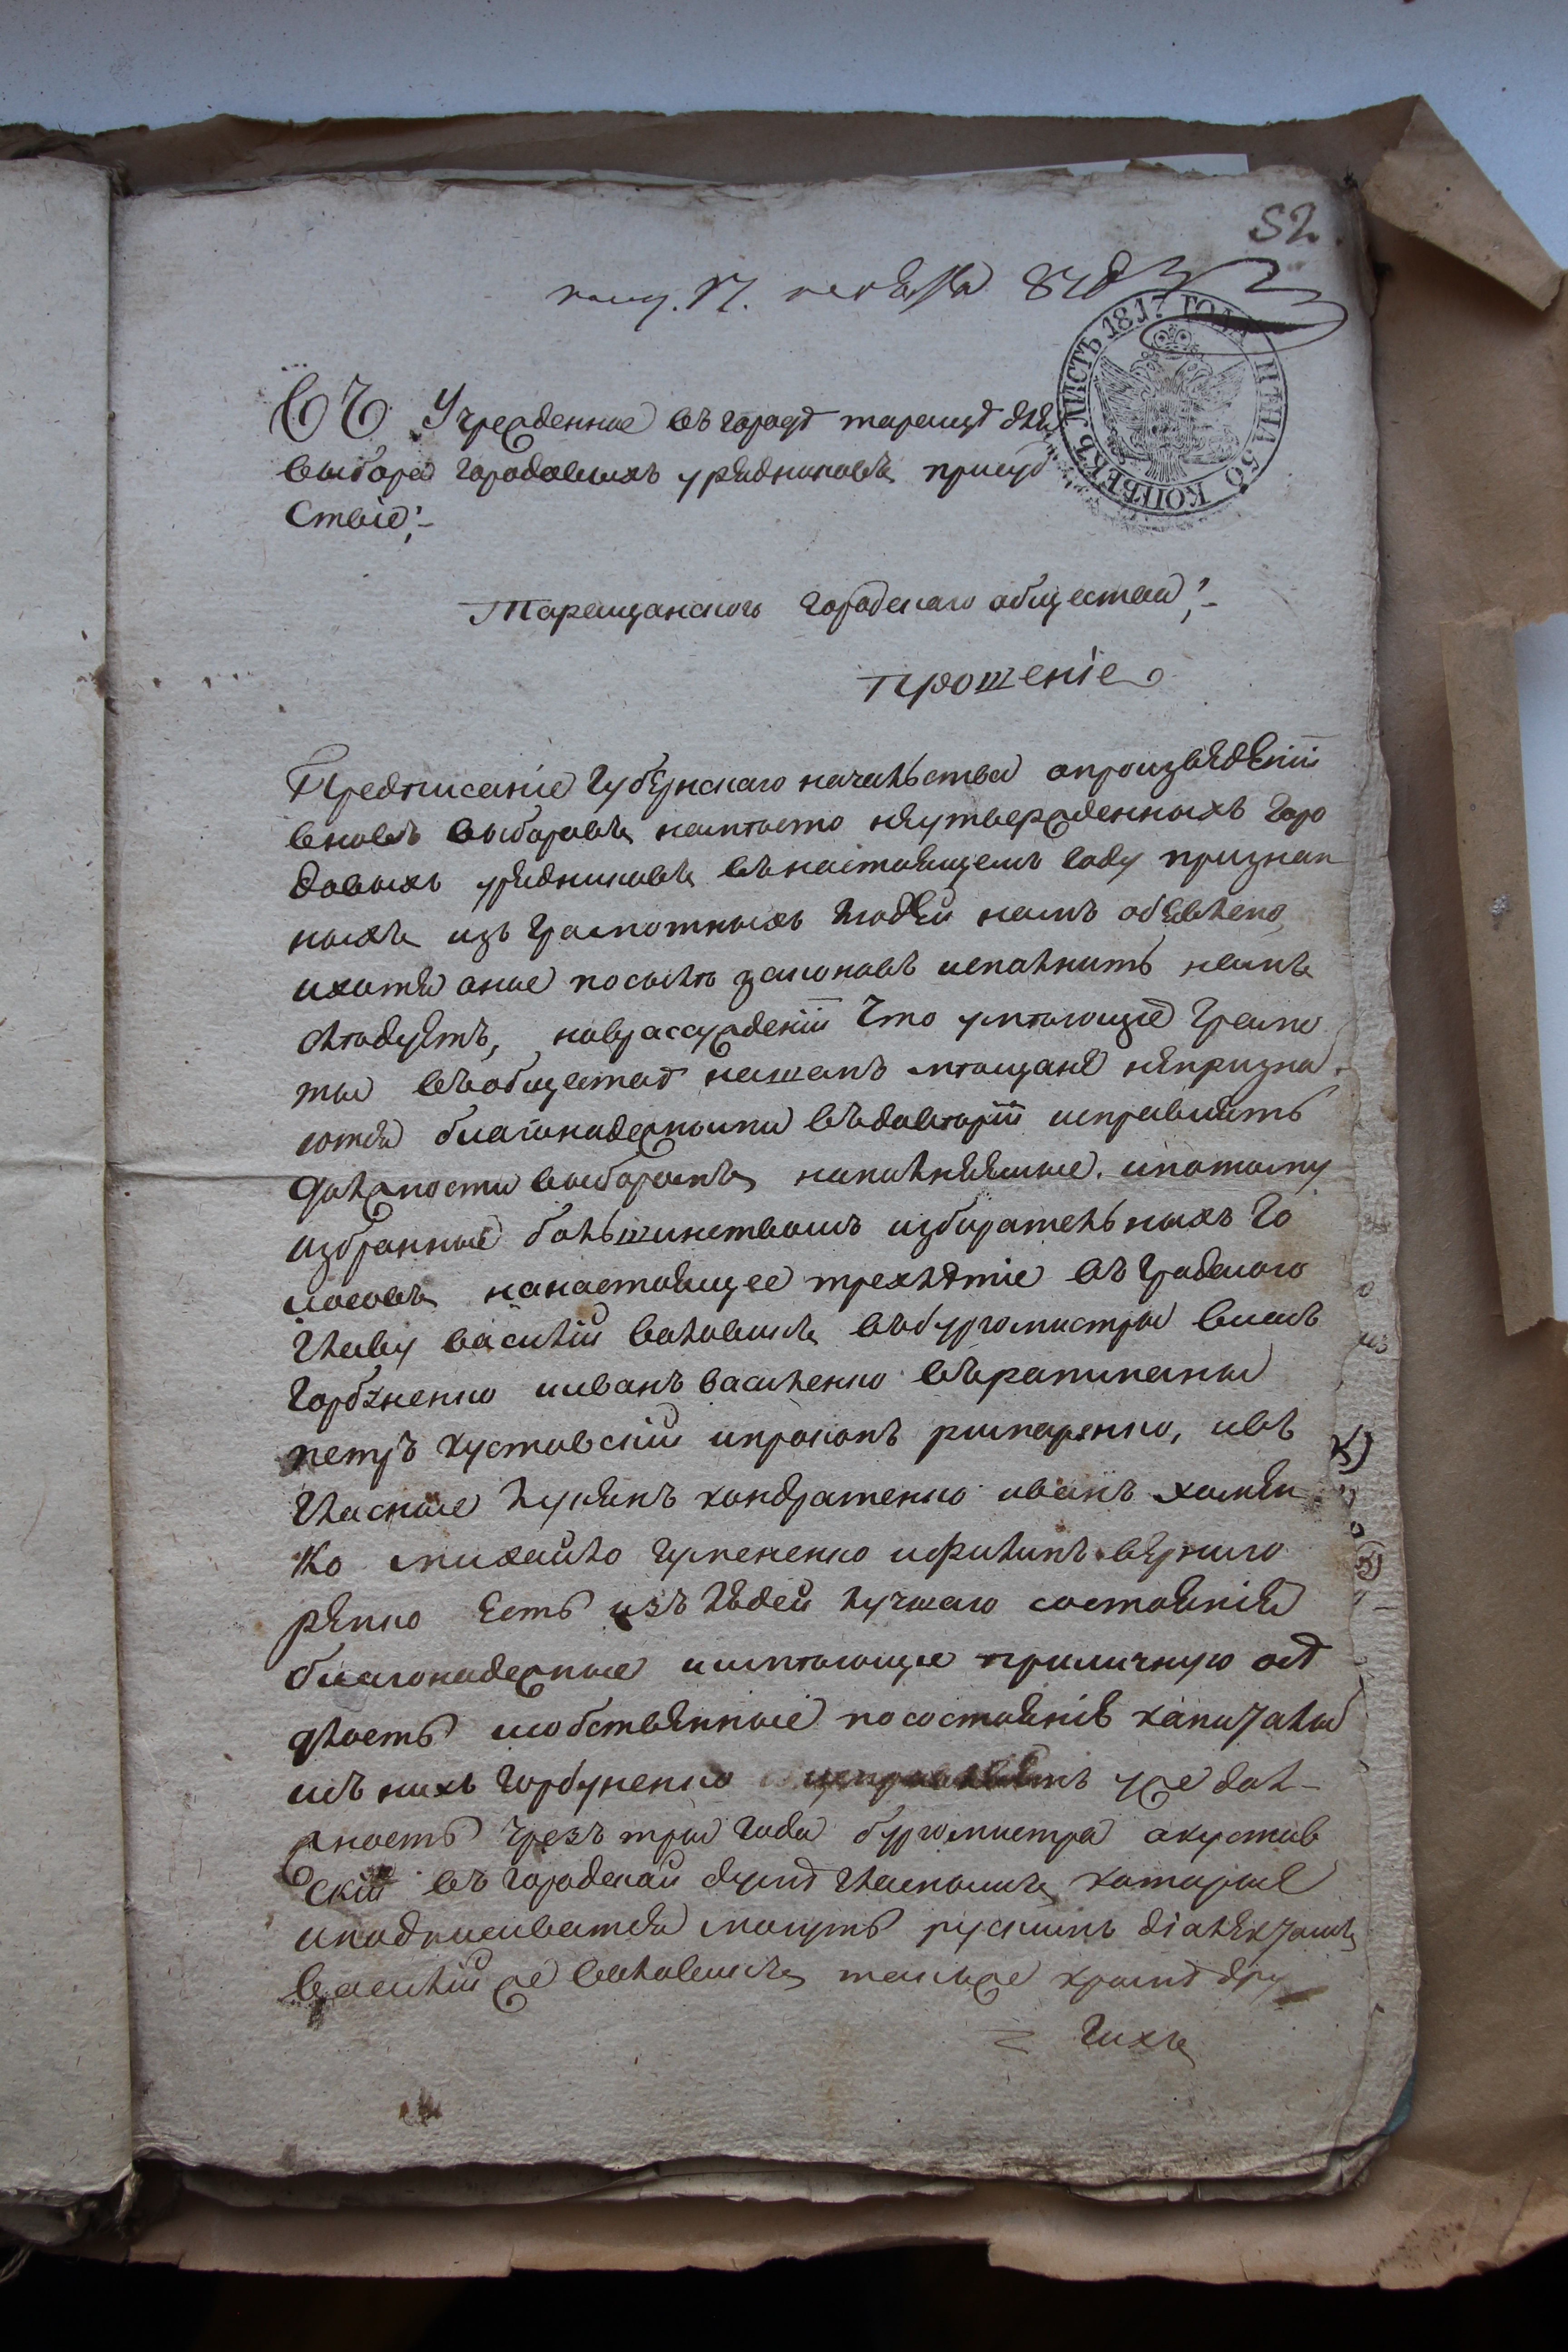 52.
ЛИСТЪ 1817 ГОДА ЦѢНА 50 КОПѢЕКЪ
Въ Учрежденное въ городѣ таращѣ для
выбора городовыхъ урядниковъ присуд
ствіе;
Таращанского городскаго общества;
прошеніе
Предписаніе Губернскаго начальства опроизвѣдѣніи
вновь выборовъ намѣсто неутвержденныхъ горо
довыхъ урядниковъ внастоящемъ году признан
ныхъ изъ грамотныхъ людей намъ объявлено,
ихотя оное посилѣ законовъ исполнить намъ
слѣдуетъ, новразсужденіи что умѣющіе грамо
ты въобществѣ нашемъ мѣщане непризна
ются благонадежными въдовѣріи исправлять
должности выборомъ наполняемые. ипотому
избранные большинствомъ избирательныхъ го
лосовъ нанастоящее трехлѣтіе въ градского
главу василій вбургомистры власъ
горбуненко ииванъ василенко вратманы
петръ хуставскій ипрокопъ римаренко, ивъ
гласные лукянъ кондратенко иванъ хомен
ко михайло ифилипъ
есть изъ людей лучшаго состоянія
благонадежные иимѣющіе приличную осѣ
длость исобственные посостоянію капиталы
изъ нихъ горбуненко исправляетъ уже дол-
жность чрезъ три года бургомистра ахустав
скій въ городской думѣ гласнымъ которые
иподписиватся могутъ рускимъ діалектомъ
василій же также кромѣ дру
= гихъ